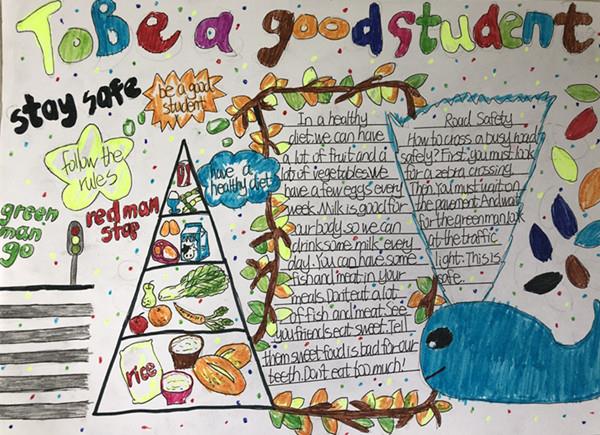 To Be a good student
stay safe
be a good
student
follow the
rules
have a
healthy diet
green
man
go
red man
stop
rice
In a healthy
diet, we can have
a lot of fruit and a
lots of vegetables. We
have a few eggs every
week. Milk is good for
our body, so we can
drink some milk every
day. You can have some
fish and meat in your
meals. Don't eat a lot
of fish and meat. See
you friends eat sweet. Tell
them sweet food is bad for our
teeth. Don't eat too much!
Road Safety
How to cross a busy road
safely? First, you must look
for a zebra crossing.
Then You must wait on
the pavement. And wait
for the green man look
at the traffic
light. This is
safe.